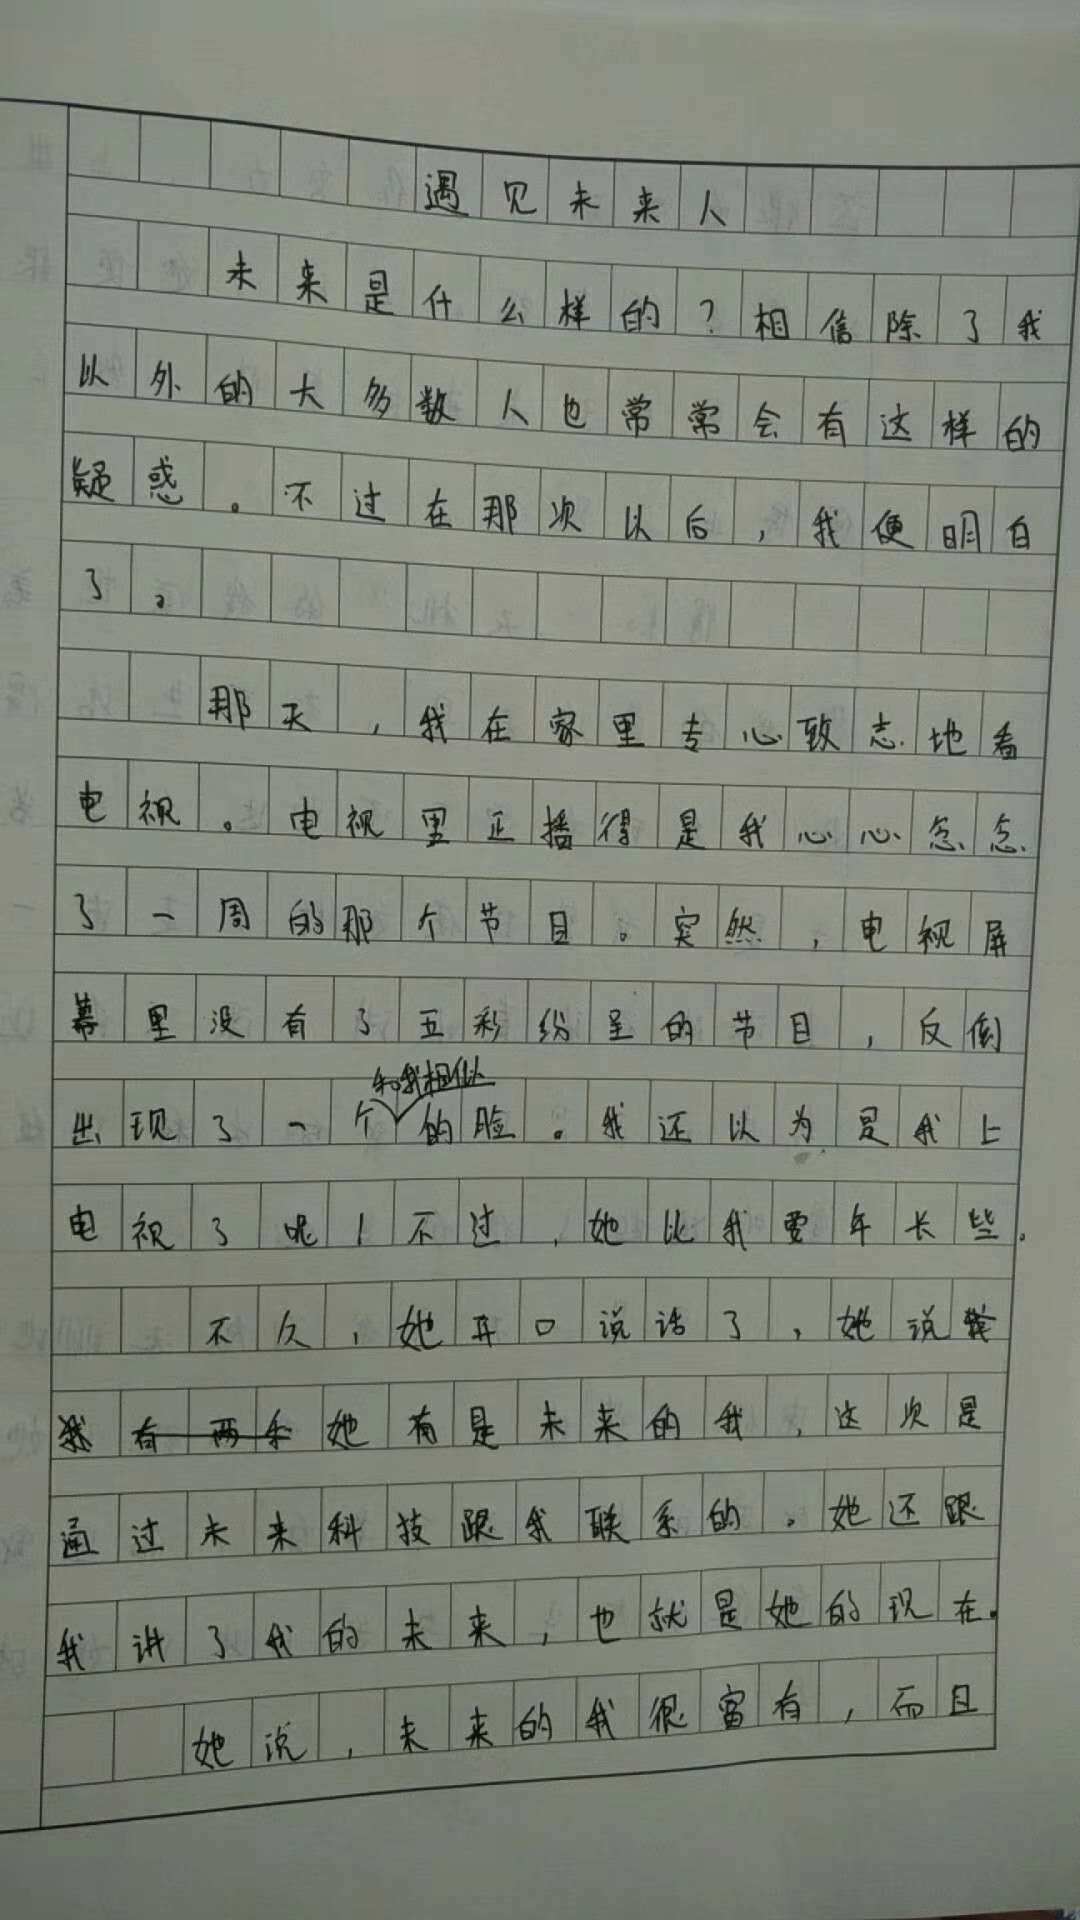 遇见未来人
未来是什么样的?相信除了我
以外的大多数人也常常会有这样的
疑惑。不过在那次以后,我便明白
了。
那天,我在家里专心致志地看
电视。电视里正播得是我心心念念
了一周的那个节目。突然,电视屏
幕里没有了五彩纷呈的节目,反倒
出现了一个和我相似的脸。我还以为是我上
电视了呢!不过,她比我要年长些。
不久,她开口说话了,她说
我她有是未来的我,这次是
通过未来科技跟我联系的。她还跟
我讲了我的未来,也就是她的现在。
她说,未来的我很富有,而且